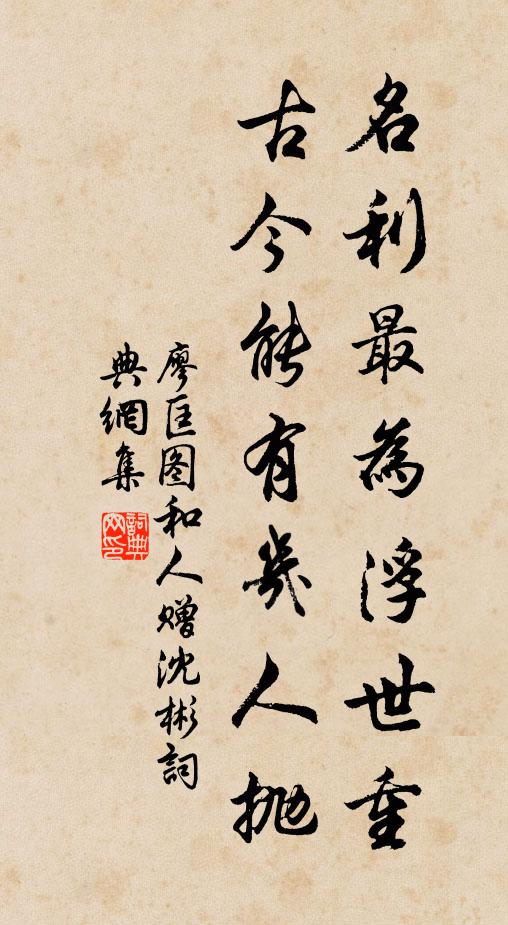 名利最為浮世重
古今能有幾人抛
廖匡图和人赠沈彬詞
典網集
詞典
网印